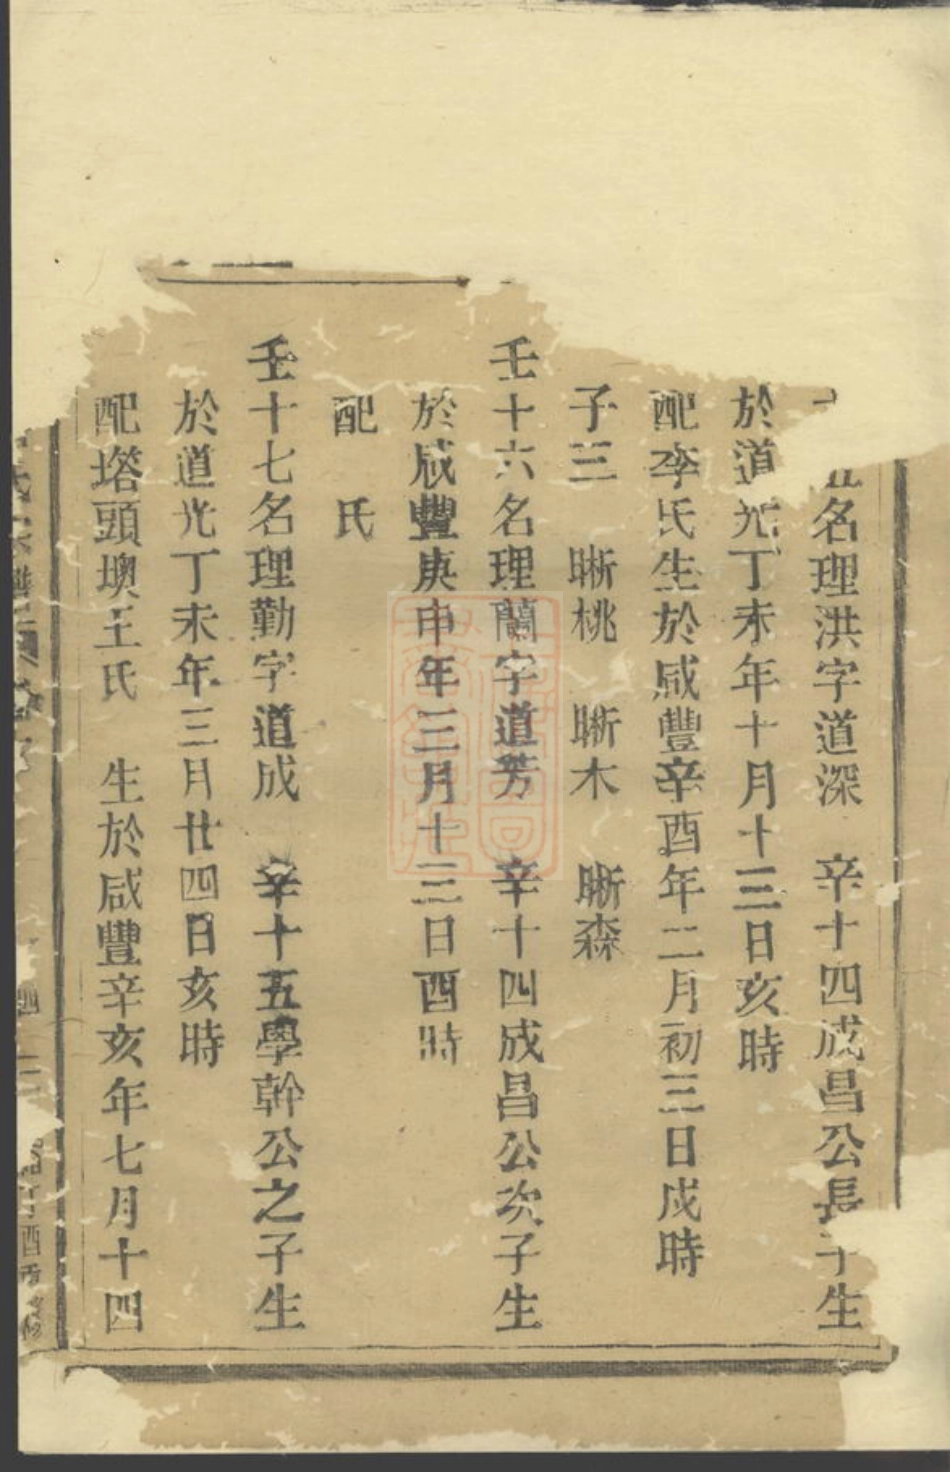 名理洪字道深　辛十四成昌公長子生
於道光丁未年十月十三日亥時
配李氏生於咸豐辛酉年二月初三日戌時
子三　晣桃　晣木　晣森
壬十六名理蘭字道芳　辛十四成昌公次子生
於咸豐庚申年三月十三日酉時
配　氏
壬十七名理勤字道成　辛十五學幹公之子生
於道光丁未年三月廿四日亥時
配塔頭墺王氏　生於咸豐辛亥年七月十四